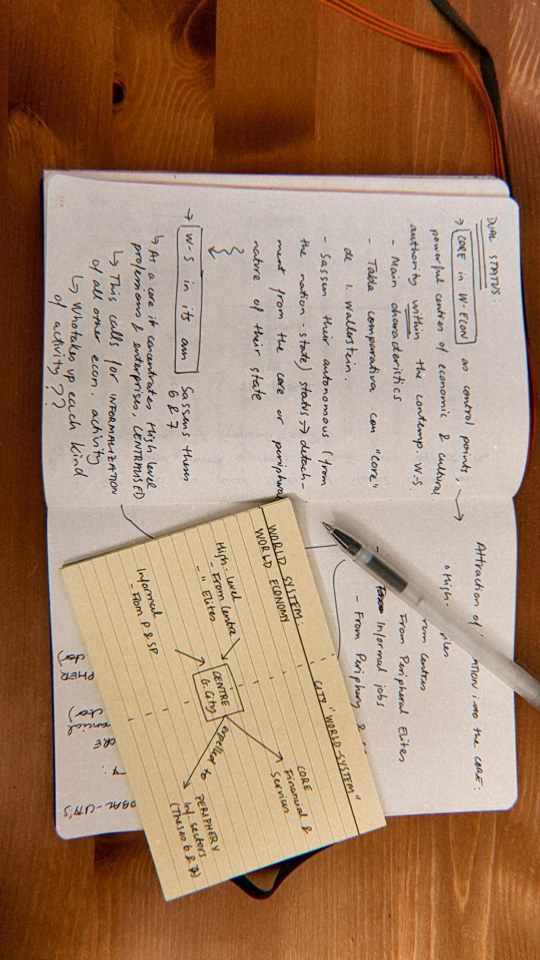 DUAL STATUS:
→ CORE in W-ECON as control points,
powerful centres of economic & cultural
authority within the contemp. W-S
- Main characteristics
- Tabla comparativa con "core"
de I. Wallerstein.
- Sassen their autonomous (from
the nation-state) status → detach-
ment from the core or peripheral
nature of their state
→ W-S in its own Sassens them
6 & 7
↳ As a core it concentrates High level
professions & enterprises. CENTRALISED
↳ This calls for INFORMALIZATION
of all other econ. activity
↳ Who takes up each kind
of activity??
Attraction of INTO the CORE:
High-
From Centres
From Peripheral Elites
- Informal jobs
- From Periphery &
WORLD SYSTEM:
WORLD ECONOMY
CITY "WORLD-SYSTEM"
High-level
- From Centre
- " Elites
Informal
- From P & SP
CENTRE
G. City
expelled to
CORE
Financial &
Services
PERIPHERY
Inf. sectors
(Theses 6 & 7)